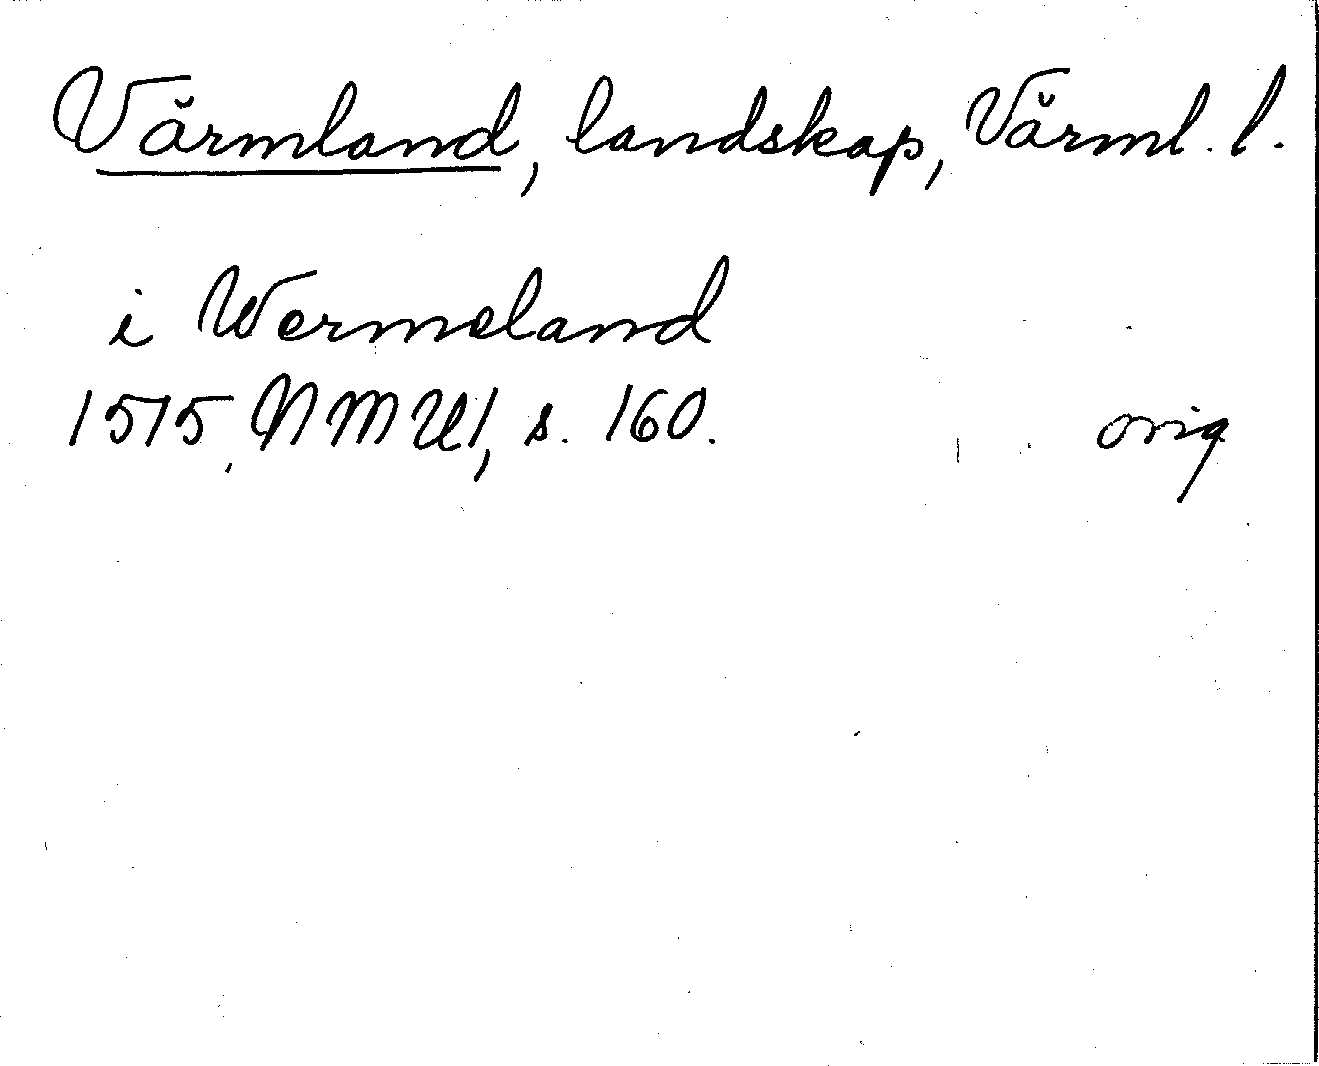 Värmland, landskap, Värml. l.
i Wermeland
1515, NMU1, s. 160. orig